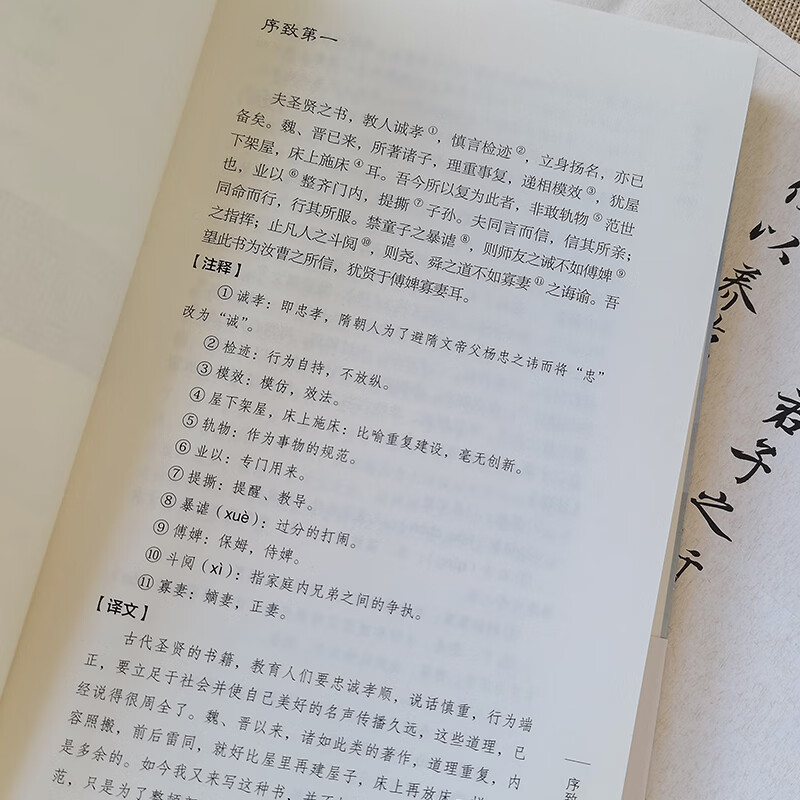 序致第一
夫圣贤之书，教人诚孝①，慎言检迹②，立身扬名，亦已
备矣。魏、晋已来，所著诸子，理重事复，递相模效③，犹屋
下架屋，床上施床④耳。吾今所以复为此者，非敢轨物⑤范世
也，业以⑥整齐门内，提撕⑦子孙。夫同言而信，信其所亲；
同命而行，行其所服。禁童子之暴谑⑧，则师友之诫不如傅婢⑨
之指挥；止凡人之斗阋⑩，则尧、舜之道不如寡妻⑪之诲谕。吾
望此书为汝曹之所信，犹贤于傅婢寡妻耳。
【注释】
①诚孝：即忠孝，隋朝人为了避隋文帝父杨忠之讳而将“忠”
改为“诚”。
②检迹：行为自持，不放纵。
③模效：模仿，效法。
④屋下架屋，床上施床：比喻重复建设，毫无创新。
⑤轨物：作为事物的规范。
⑥业以：专门用来。
⑦提撕：提醒、教导。
⑧暴谑（xuè）：过分的打闹。
⑨傅婢：保姆，侍婢。
⑩斗阋（xì）：指家庭内兄弟之间的争执。
⑪寡妻：嫡妻，正妻。
【译文】
古代圣贤的书籍，教育人们要忠诚孝顺，说话慎重，行为端
正，要立足于社会并使自己美好的名声传播久远，这些道理，已
经说得很周全了。魏、晋以来，诸如此类的著作，道理重复，内
容照搬，前后雷同，就好比屋里再建屋子，床上再放床一样
是多余的。如今我又来写这种书，并不
范，只是为了整顿
序致
以养
君子之